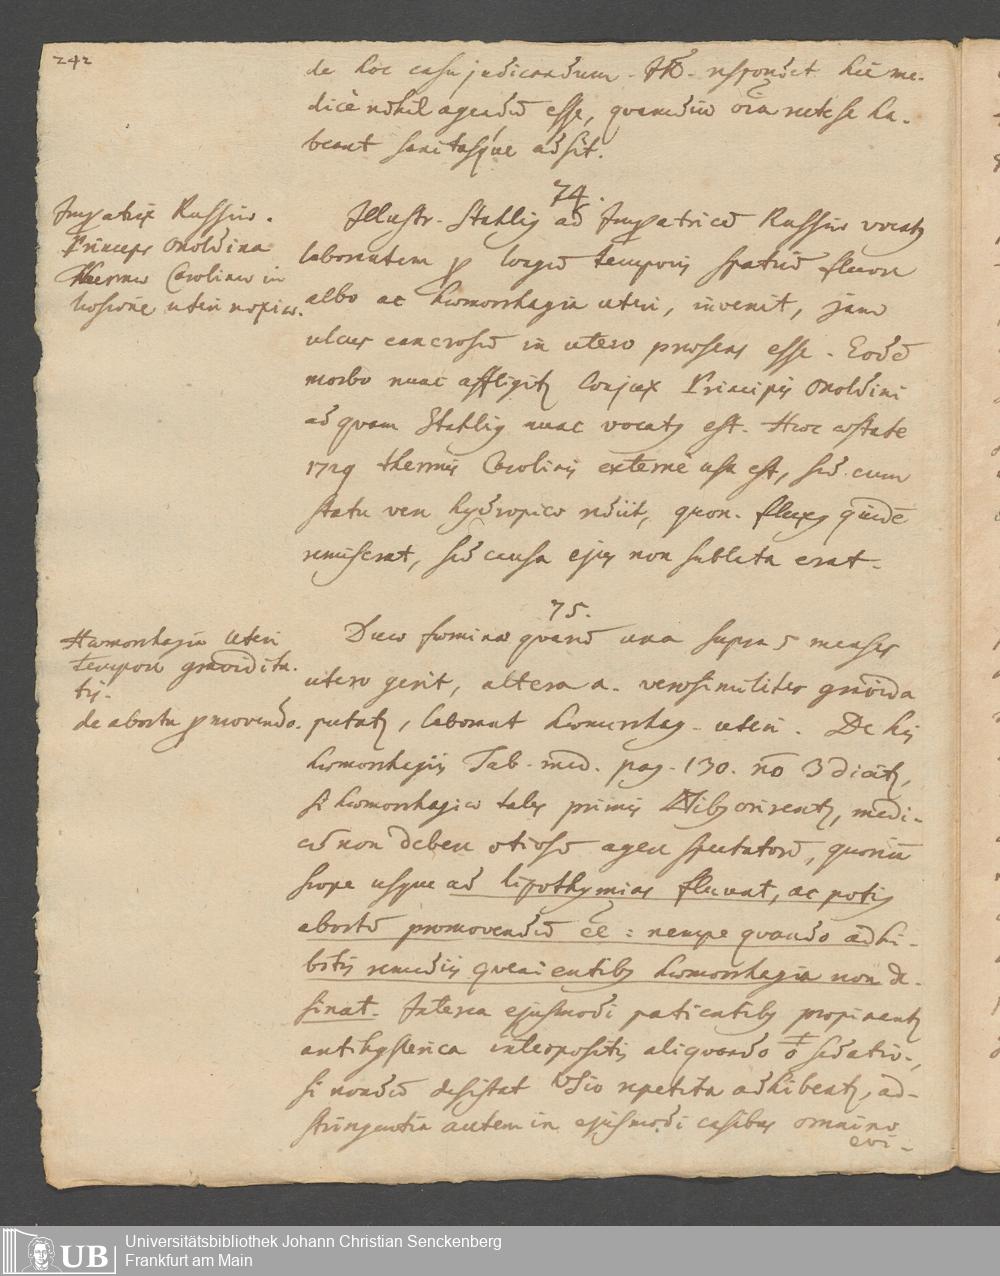 242
de hoc casu judicandum. Rs. respondet hic me-
dicè nihil agendũ esse, quamdiu oĩa recte se ha-
beant sanitasque adsit.
74.
Imperatrix Russiæ.
Princeps Onoldina
Thermæ Carolinæ in
læsione uteri noxiæ.
Illustr. Stahlig ad Imperatricẽ Russiæ vocatq
laborantem per longũ temporis spatiũ fluore
albo ac hæmorrhagia uteri, invenit, jam
ulcus cancrosũ in utero præsens esse. Eodẽ
morbo nunc affligitr Conjux Principis Onoldini
ad quam Stahlig nunc vocatq est. Hac æstate
1729 thermis Carolinis externè usa est, sed cum
statu vere hydropico rediit, quon. fluxq quidẽ
remiserat, sed causa ejq non sublata erat.
75.
Hæmorrhagia Uteri
tempore gravidita-
tis.
de abortu promovendo.
Duæ fœminæ quarũ una supra 5 menses
utero gerit, altera a. verosimiliter gravida
putatr, laborant hæmorrhag. uteri. De his
hæmorrhagiis Tab. med. pag. 130. nõ 3 dicitr,
si hæmorrhagiæ tales primis oriventr, medi-
cũ non debere otiosũ agere spectatorẽ, quoniã
sæpe usque ad lipothymias fluunt, ac potiq
abortũ promovendũ ẽe: nempe quando adhi-
bitis remediis quaientibq hæmorrhagia non de-
sinat. Interea ejusmodi patientibq propinentr
antihysterica interpositis aliquando sedativ.,
si nondũ desistat repetita adhibeatr, ad-
stringentia autem in ejusmodi casibus omnino
evi-
UB
Universitätsbibliothek Johann Christian Senckenberg
Frankfurt am Main